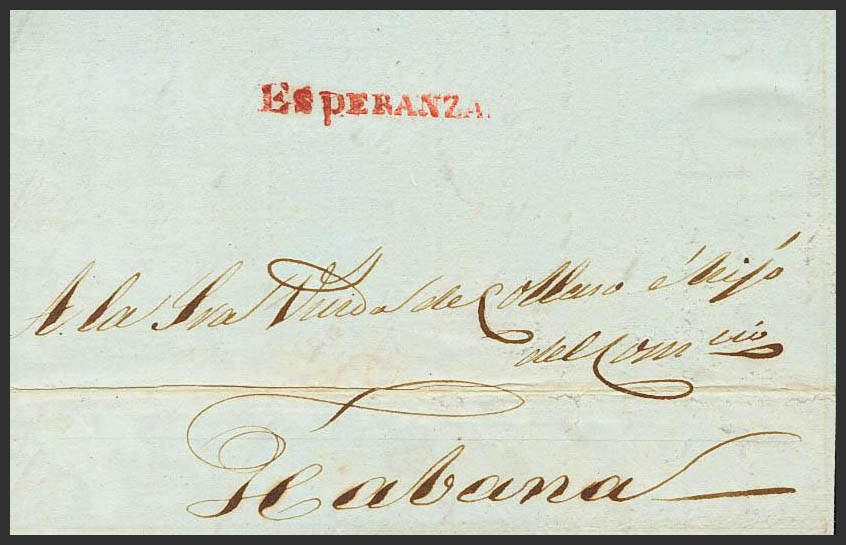 ESPERANZA.
A. la Sra Viuda de Collaso é hijo
del Comcio
Habana